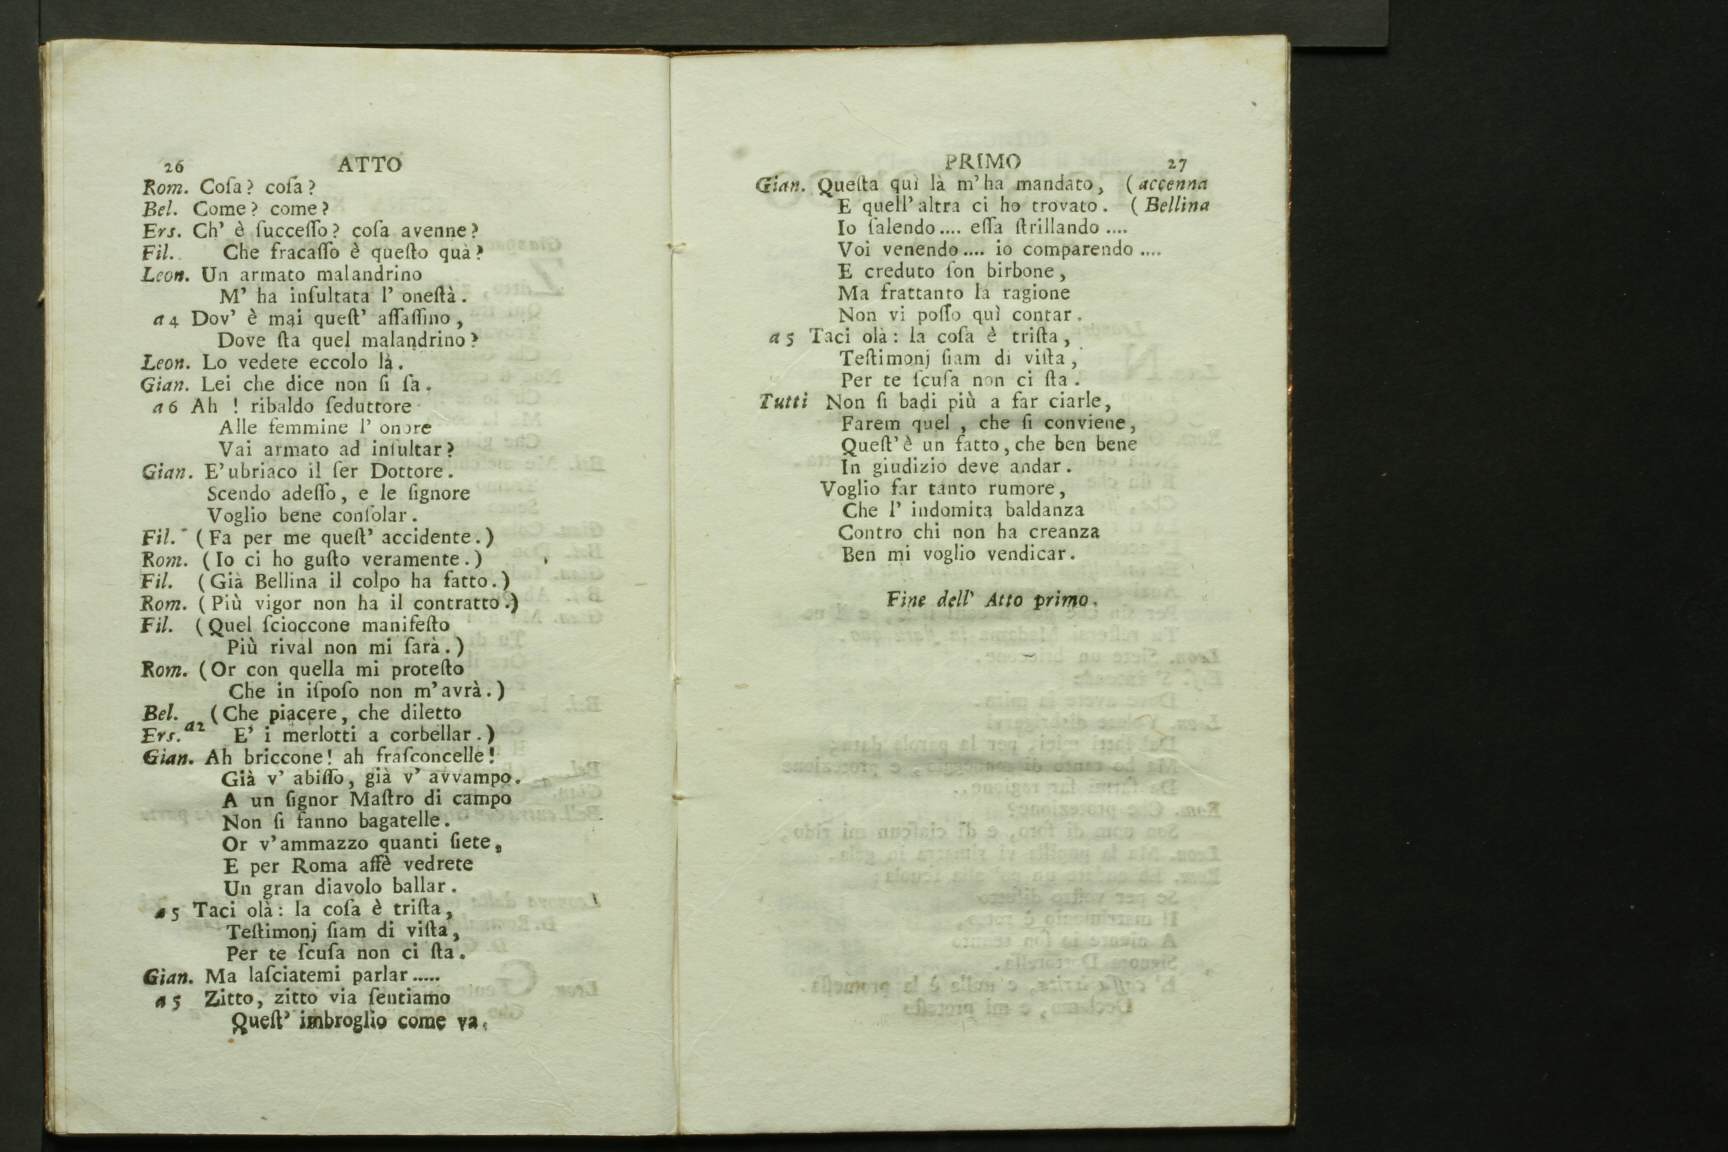 26 ATTO
Rom. Coſa? coſa?
Bel. Come? come?
Ers. Ch' è ſucceſſo? coſa avenne?
Fil. Che fracaſſo è queſto quà?
Leon. Un armato malandrino
M' ha inſultata l' oneſtà.
a 4 Dov' è mai queſt' aſſaſſino,
Dove ſta quel malandrino?
Leon. Lo vedete eccolo là.
Gian. Lei che dice non ſi ſa.
a 6 Ah ! ribaldo ſeduttore
Alle femmine l' onore
Vai armato ad inſultar?
Gian. E' ubriaco il ſer Dottore.
Scendo adeſſo, e le ſignore
Voglio bene conſolar.
Fil. (Fa per me queſt' accidente.)
Rom. (Io ci ho guſto veramente.)
Fil. (Già Bellina il colpo ha fatto.)
Rom. (Più vigor non ha il contratto.)
Fil. (Quel ſcioccone manifeſto
Più rival non mi ſarà.)
Rom. (Or con quella mi proteſto
Che in iſpoſo non m'avrà.)
Bel. (Che piacere, che diletto
Ers. a2 E' i merlotti a corbellar.)
Gian. Ah briccone! ah fraſconcelle!
Già v' abiſſo, già v' avvampo.
A un ſignor Maſtro di campo
Non ſi fanno bagatelle.
Or v'ammazzo quanti ſiete,
E per Roma affè vedrete
Un gran diavolo ballar.
a 5 Taci olà: la coſa è triſta,
Teſtimonj ſiam di viſta,
Per te ſcuſa non ci ſta.
Gian. Ma laſciatemi parlar.....
a 5 Zitto, zitto via ſentiamo
Queſt' imbroglio come va.
PRIMO 27
Gian. Queſta quì là m'ha mandato, (accenna
E quell'altra ci ho trovato. (Bellina
Io ſalendo.... eſſa ſtrillando....
Voi venendo.... io comparendo....
E creduto ſon birbone,
Ma frattanto la ragione
Non vi poſſo quì contar.
a 5 Taci olà: la coſa è triſta,
Teſtimonj ſiam di viſta,
Per te ſcuſa non ci ſta.
Tutti Non ſi badi più a far ciarle,
Farem quel, che ſi conviene,
Queſt'è un fatto, che ben bene
In giudizio deve andar.
Voglio far tanto rumore,
Che l' indomita baldanza
Contro chi non ha creanza
Ben mi voglio vendicar.
Fine dell' Atto primo.